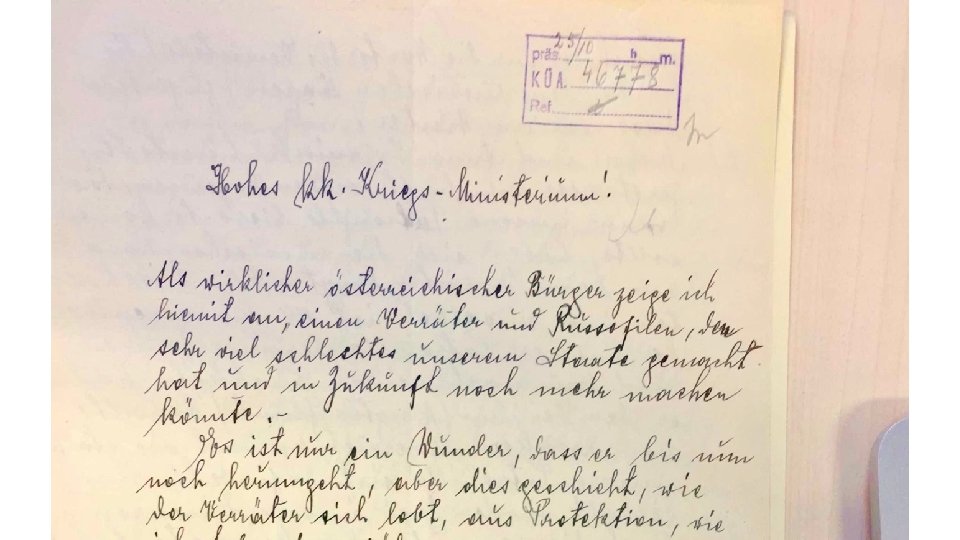 präs. 25/10 h m.
K Ü A. 46778
Ref.
Hohes kk. Kriegs-Ministerium!
Als wirklicher österreichischer Bürger zeige ich
hiemit an, einen Verräter und Russofilen, der
sehr viel schlechtes unserem Staate gemacht
hat und in Zukunft noch mehr machen
könnte.-
Es ist nur ein Wunder, dass er bis nun
noch herumgeht, aber dies geschieht, wie
der Verräter sich lobt, aus Protektion, wie